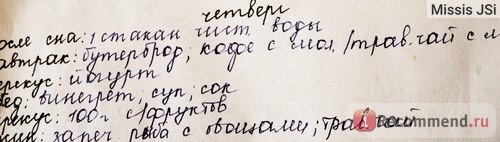 Missis JSi
четверг
осле сна: 1 стакан чист. воды
автрак: бутерброд; кофе с мол./трав. чай с м
ерекус: йогурт
бед: винегрет; суп; сок
ерекус: 100г с/фруктов
жин: запеч рыба с овощами; трав чай
iRecommend.ru